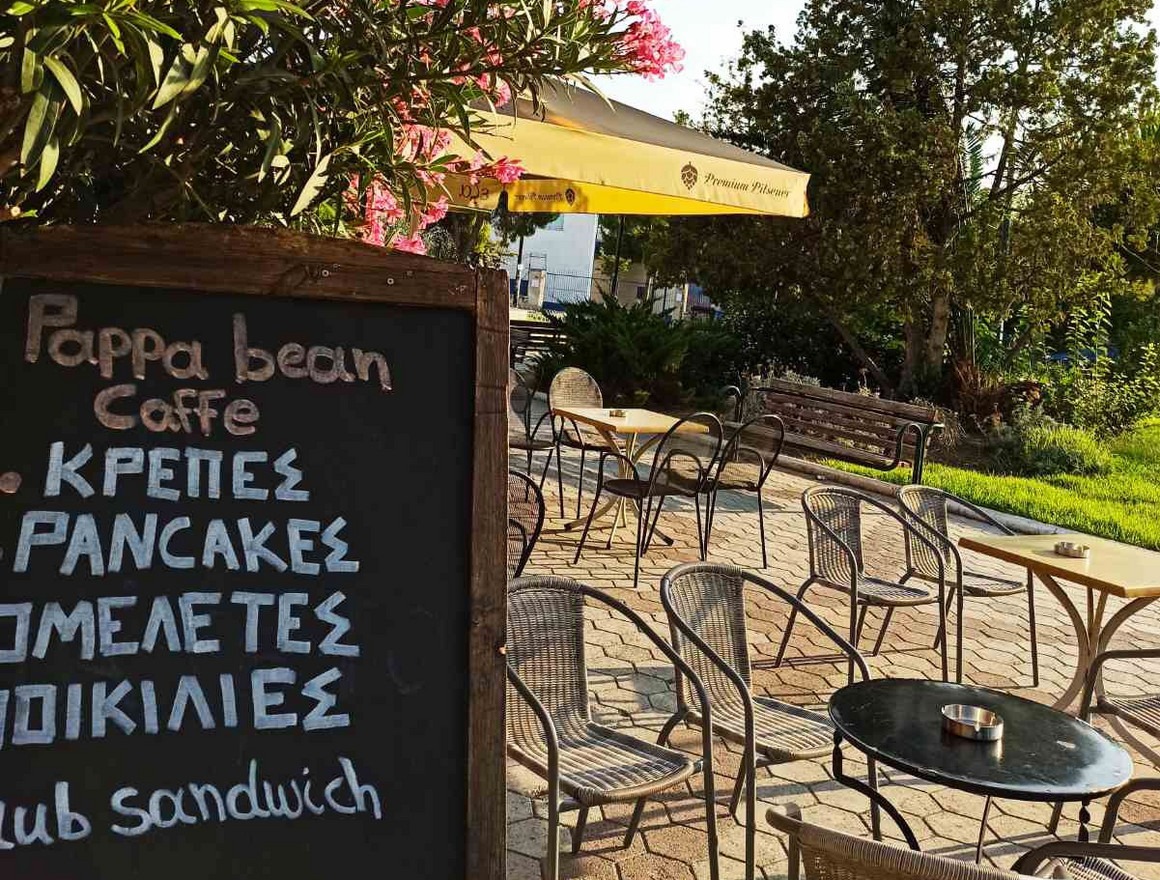 Pappa bean
Caffe
• ΚΡΕΠΕΣ
PANCAKEΣ
ΟΜΕΛΕΤΕΣ
ΠΟΙΚΙΛΙΕΣ
lub sandwich
Premium Pilsener